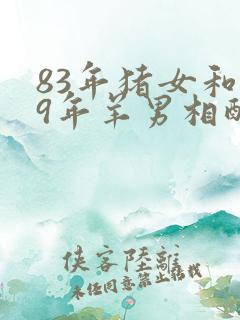 83年猪女和
9年羊男相配
侠客陆離
未任同意禁止搭载